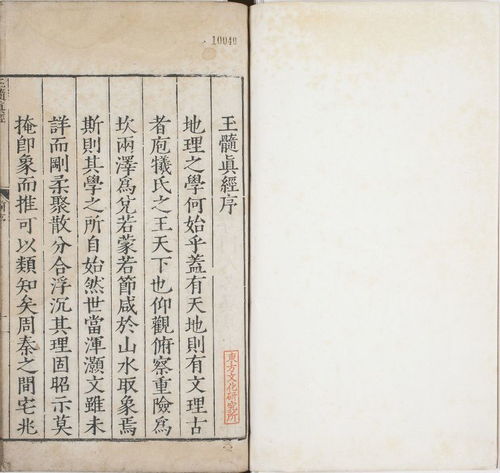 10040
玉髓眞經序
地理之學何始乎蓋有天地則有文理古
者庖犧氏之王天下也仰觀俯察重險爲
坎兩澤爲兌若蒙若節咸於山水取象焉
斯則其學之所自始然世當渾灝文雖未
詳而剛柔聚散分合浮沉其理固昭示莫
掩卽象而推可以類知矣周秦之間宅兆
東方文化研究所